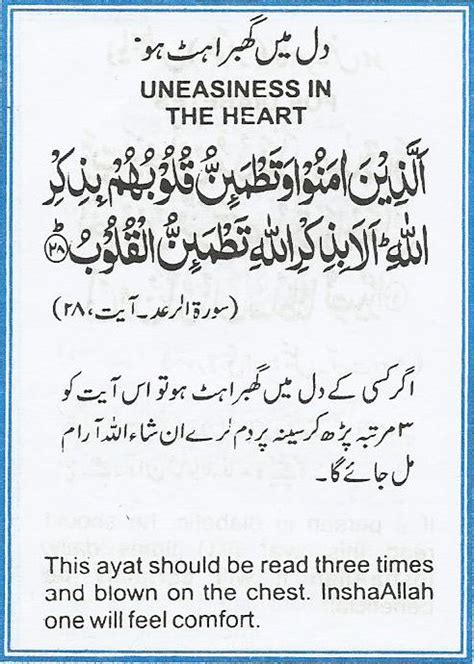 دل میں گھبراہٹ ہو
UNEASINESS IN
THE HEART
اَلَّذِيْنَ اٰمَنُوْا وَتَطْمَئِنُّ قُلُوْبُهُمْ بِذِكْرِ
اللّٰهِ ؕ اَلَا بِذِكْرِ اللّٰهِ تَطْمَئِنُّ الْقُلُوْبُ ؕ ﴿۲۸﴾
(سورۃ الرعد۔ آیت، ۲۸)
اگر کسی کے دل میں گھبراہٹ ہو تو اس آیت کو
۳ مرتبہ پڑھ کر سینہ پر دم کرے ان شاء اللہ آرام
مل جائے گا۔
This ayat should be read three times
and blown on the chest. InshaAllah
one will feel comfort.